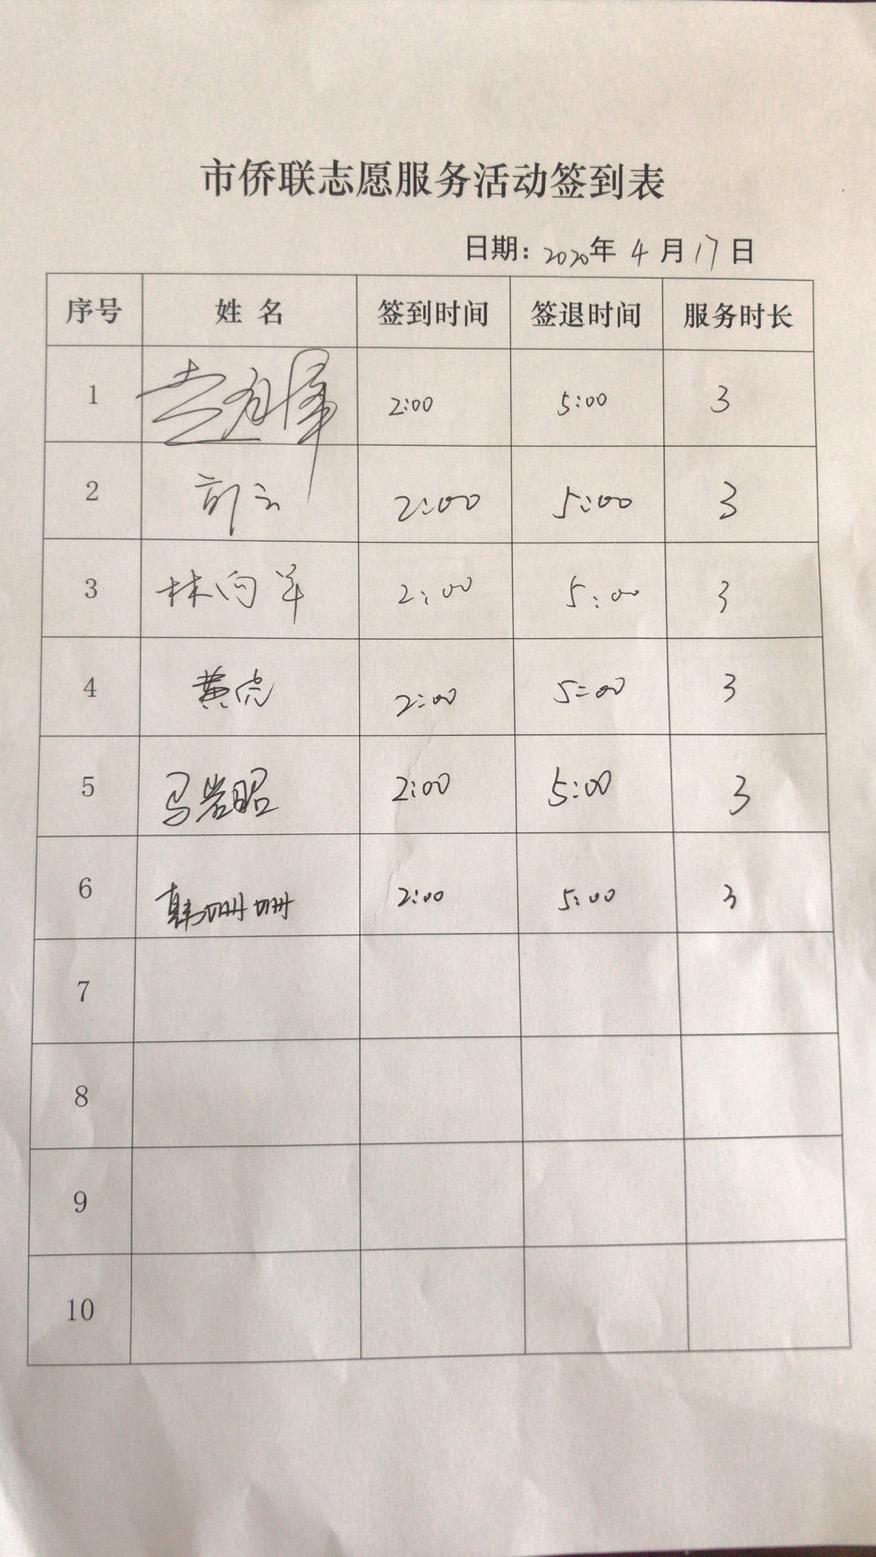 市侨联志愿服务活动签到表
日期：2020年 4 月 17 日
序号 姓 名 签到时间 签退时间 服务时长
1 2:00 5:00 3
2 2:00 5:00 3
3 林向羊 2:00 5:00 3
4 黄 2:00 5:00 3
5 马岩昭 2:00 5:00 3
6 韩珊珊 2:00 5:00 3
7
8
9
10